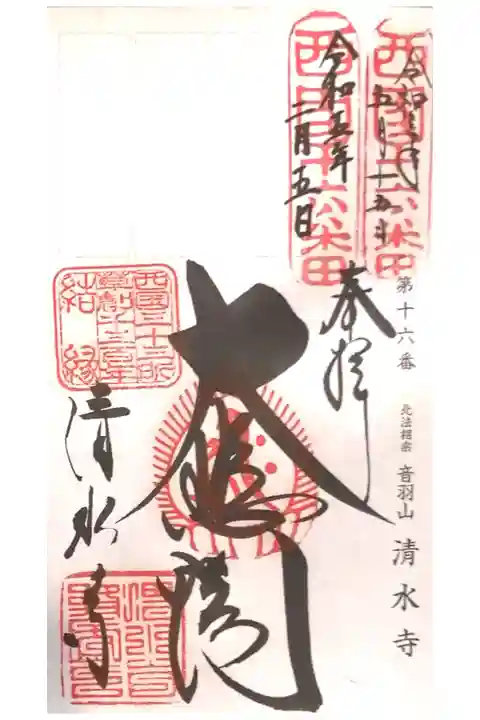 西国十六番
五月十五日
西国十六番
令和五年
二月五日
第十六番 北法相宗 音羽山 清水寺
奉拝
大悲閣
西國三十三所
草創千三百年
結縁
清水寺